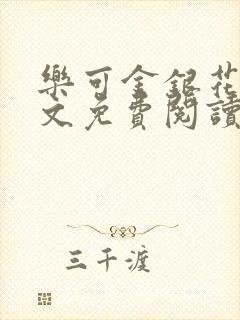 樂可金銀花
文免費閱讀
三千渡